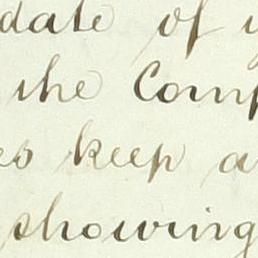 date of
the Comp
es keep a
showing